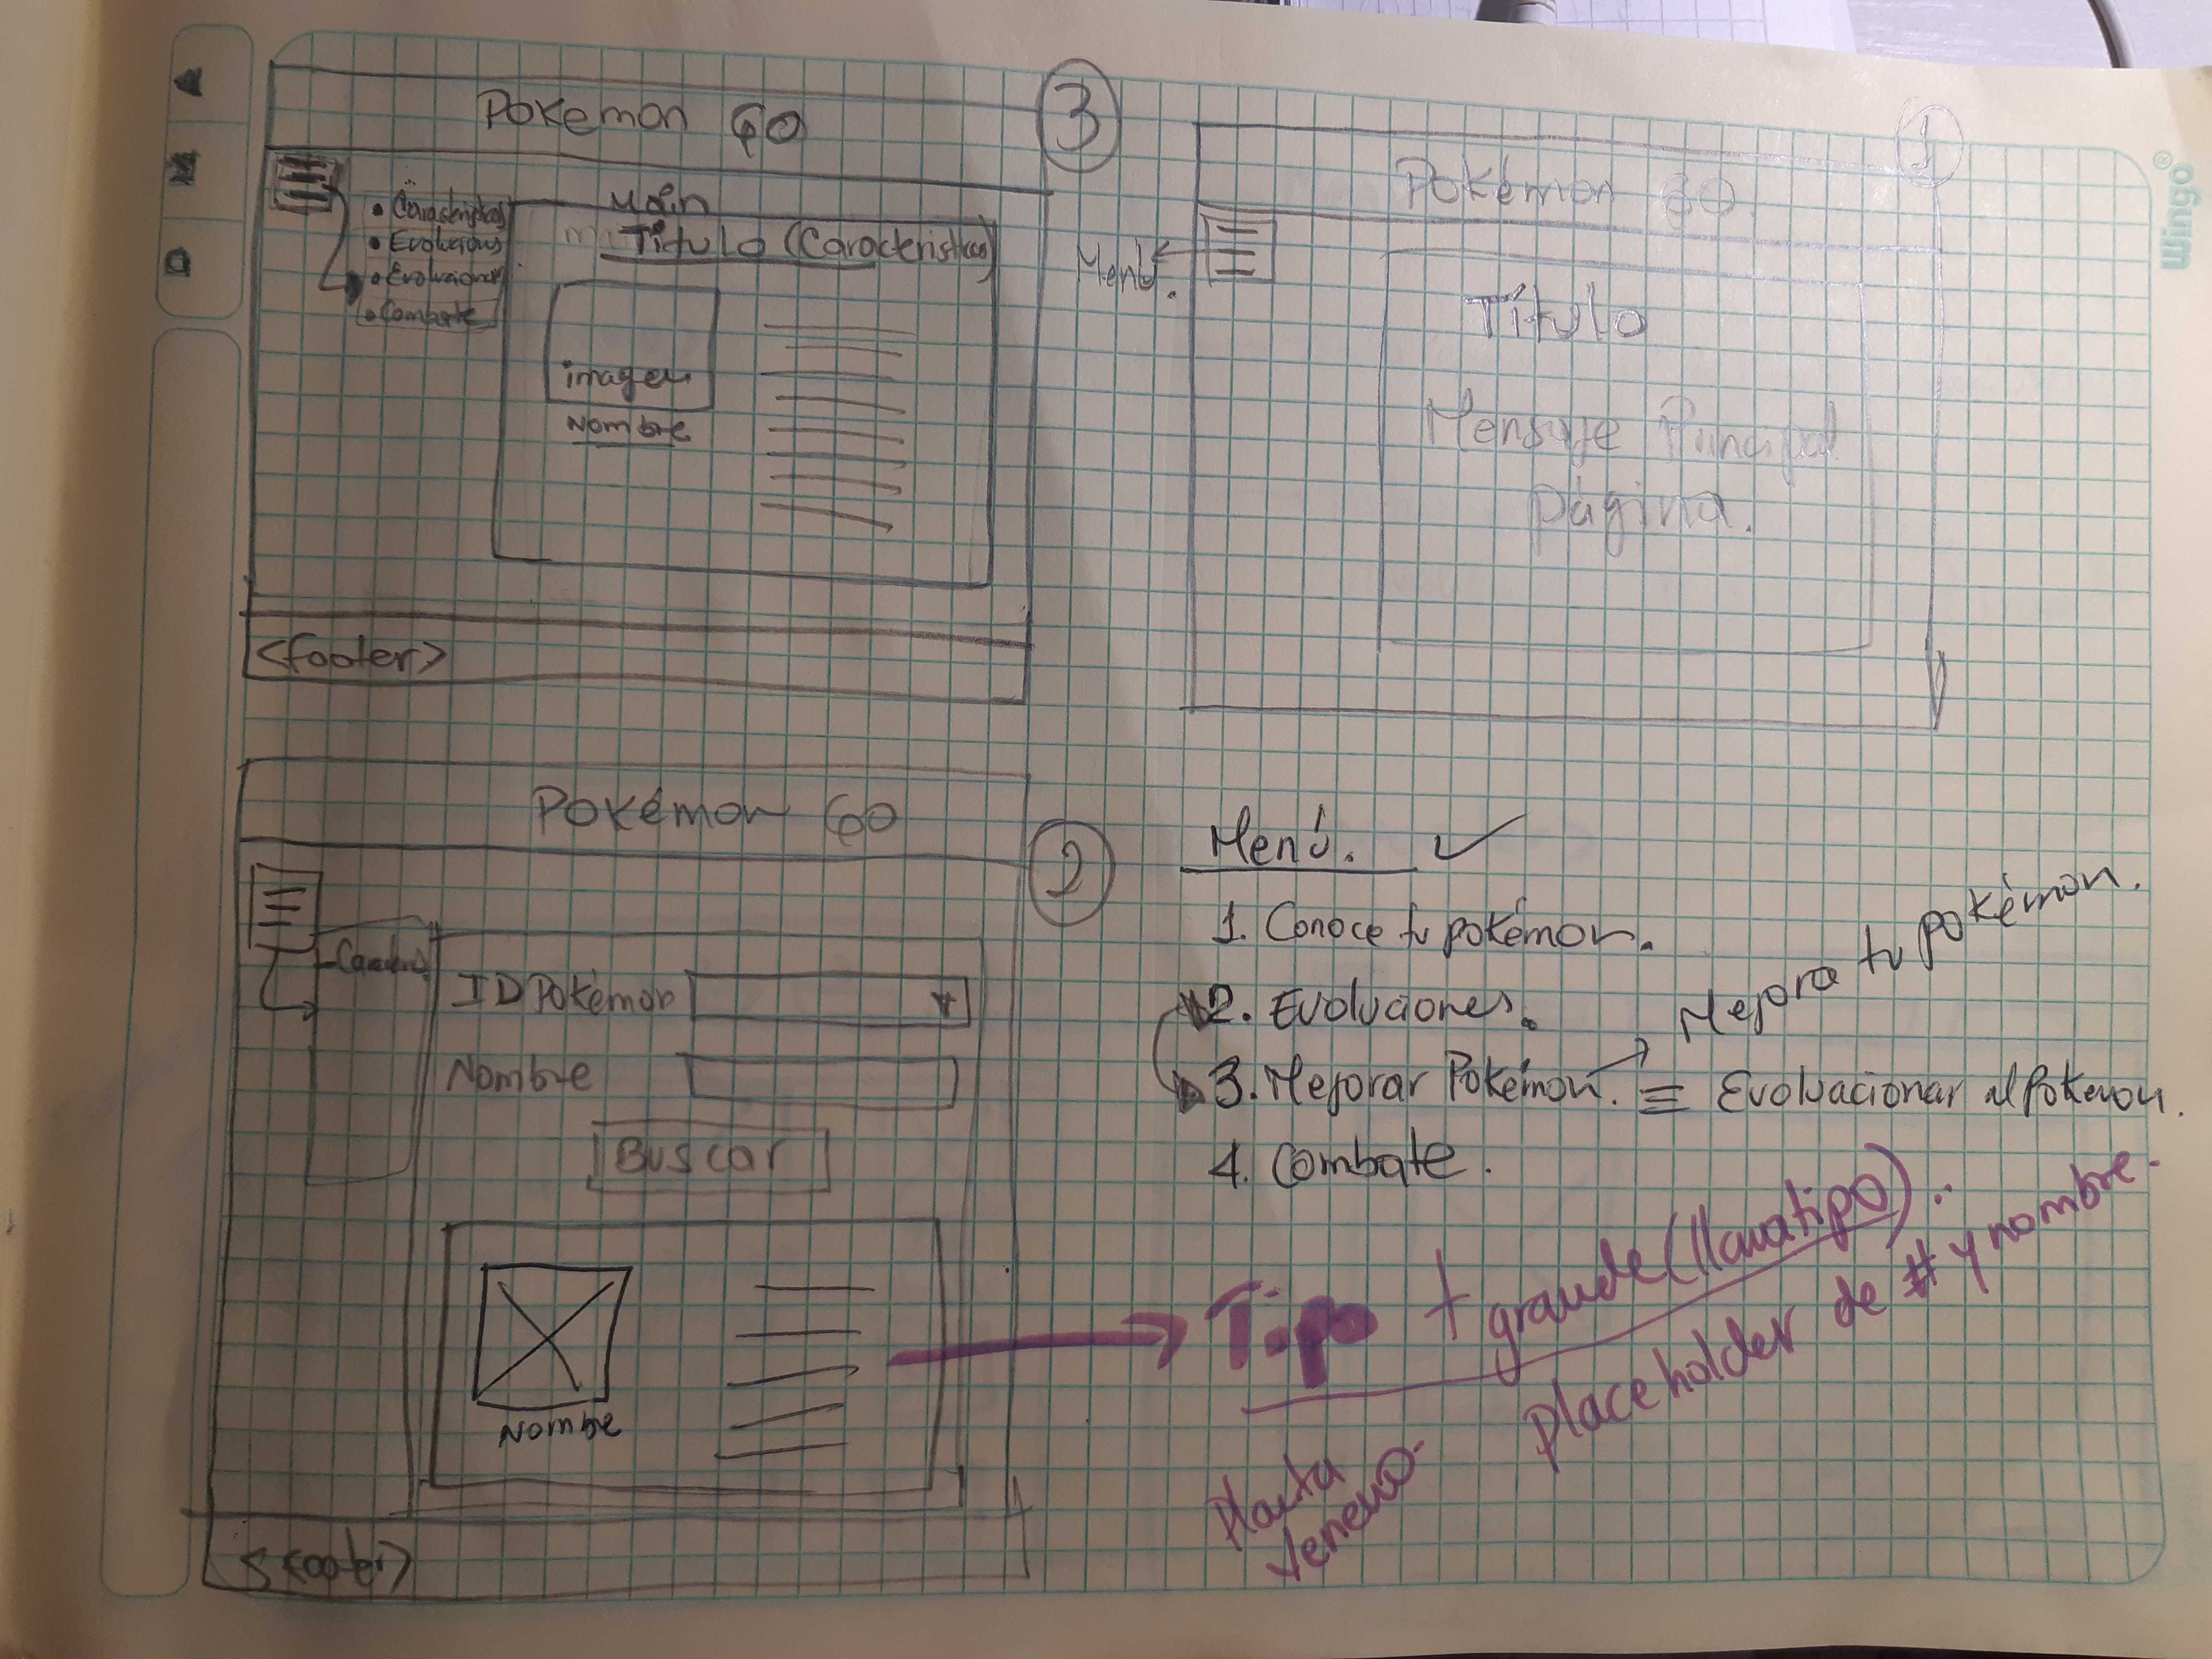 A
M
D
Pokemon GO
3
• Características
• Evoluciones
• Evolucionar
• Combate
Main
Título (Características)
imagen
Nombre
<footer>
1
Pokémon GO
Menú.
Título
Mensaje Principal
página.
Wingo®
Pokémon GO
2
ID Pokémon
Nombre
Buscar
Nombre
<footer>
Menú.
1. Conoce tu pokémon.
2. Evoluciones.
3. Mejorar Pokémon. ≡ Evoluacionar al Pokemon.
Mejora tu pokémon.
4. Combate.
Tipo + grande (llama tipo)..
Placeholder de # y nombre.
Planta
Veneno.